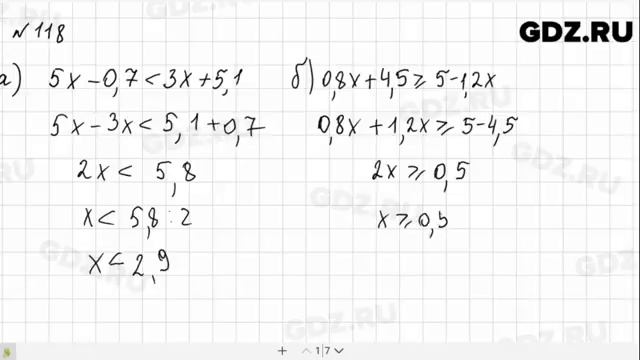 № 118
GDZ.RU
а) 5x-0,7<3x+5,1
5x-3x<5,1+0,7
2x< 5,8
x< 5,8:2
x<2,9
б) 0,8x+4,5≥5-1,2x
0,8x+1,2x≥5-4,5
2x≥0,5
x≥0,5
GDZ.RU
GDZ.RU
GDZ.RU
1|7